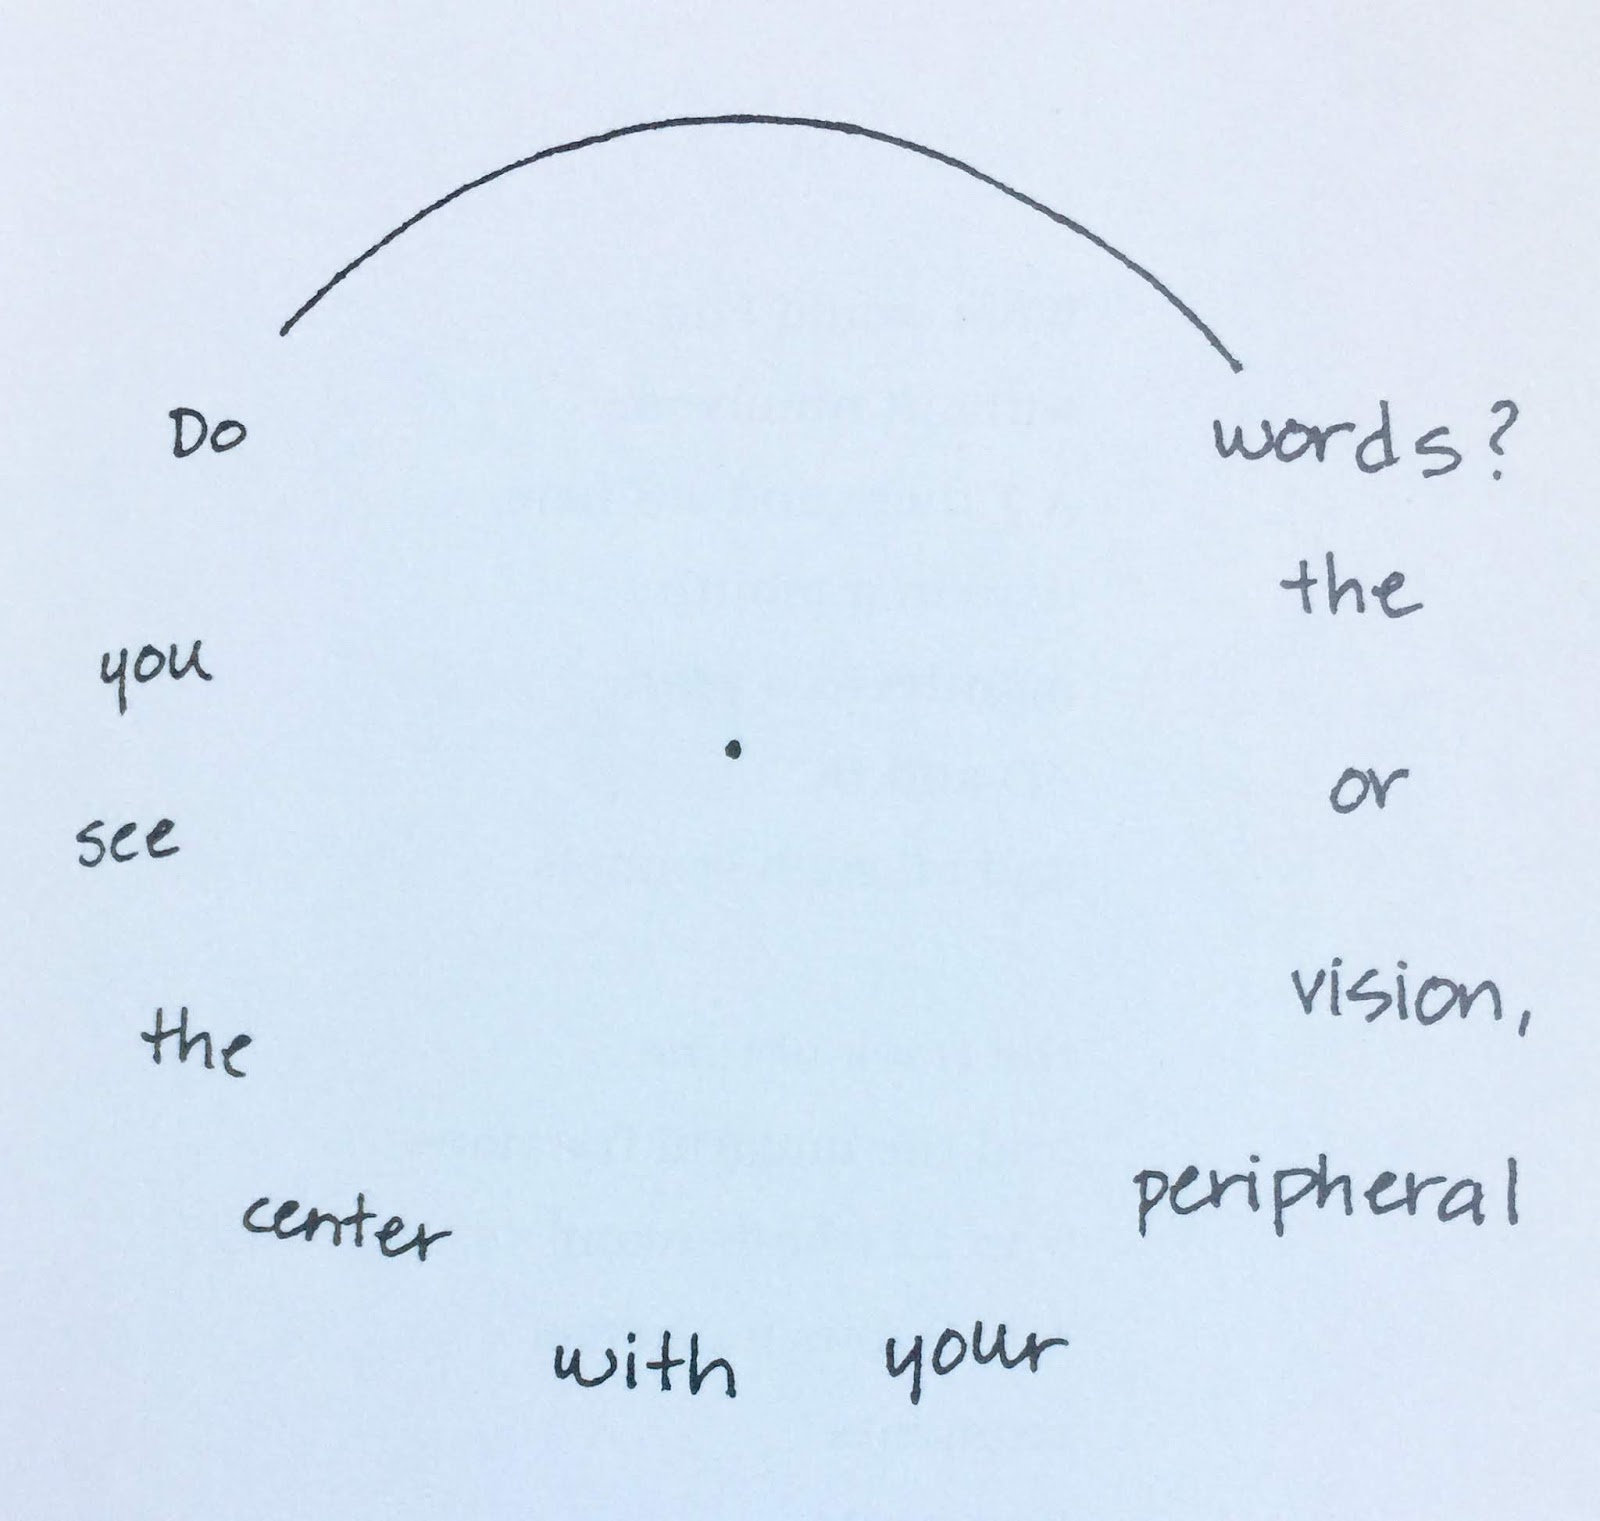 Do
you
see
the
center
with your
peripheral
vision,
or
the
words?